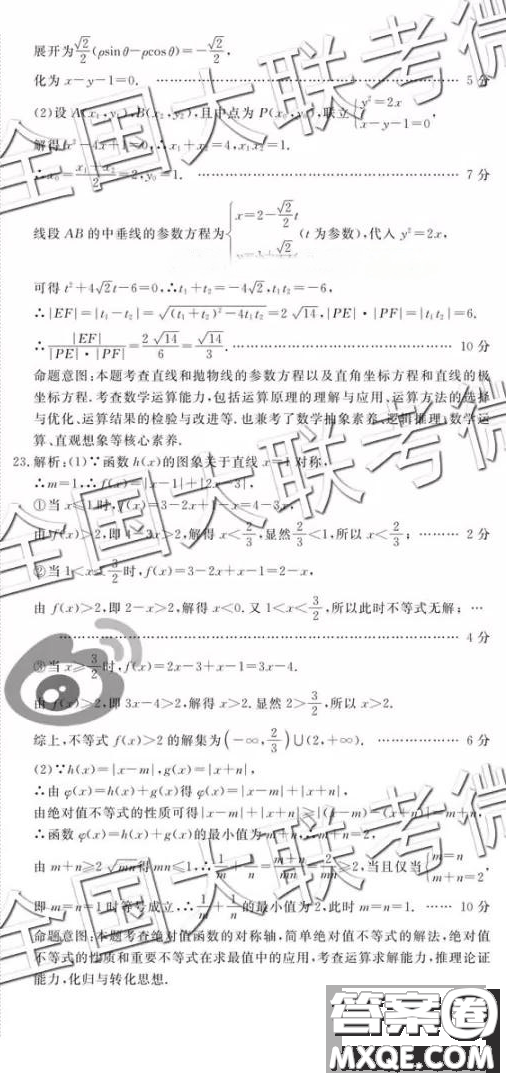 展开为√2/2(ρsinθ-ρcosθ)=-√2/2,
化为 x-y-1=0. …… 5 分
(2)设 A(x₁,y₁),B(x₂,y₂),且中点为 P(x₀,y₀),联立{y²=2x, x-y-1=0,
解得 x²-4x+1=0,∴x₁+x₂=4,x₁x₂=1.
∴x₀=(x₁+x₂)/2=2,y₀=1. …… 7 分
线段 AB 的中垂线的参数方程为{x=2-√2/2 t (t 为参数),代入 y²=2x,
可得 t²+4√2t-6=0,∴t₁+t₂=-4√2,t₁t₂=-6,
∴|EF|=|t₁-t₂|=√((t₁+t₂)²-4t₁t₂)=2√14,|PE|·|PF|=|t₁t₂|=6.
∴|EF|/(|PE|·|PF|)=2√14/6=√14/3. …… 10 分
命题意图:本题考查直线和抛物线的参数方程以及直角坐标方程和直线的极
坐标方程.考查数学运算能力,包括运算原理的理解与应用、运算方法的选择
与优化、运算结果的检验与改进等.也兼考了数学抽象素养、逻辑推理、数学运
算、直观想象等核心素养.
23.解析:(1)∵函数 h(x)的图象关于直线 x=1 对称,
∴m=1,∴f(x)=|x-1|+|2x-3|,
①当 x≤1 时,f(x)=3-2x+1-x=4-3x,
由 f(x)>2,即 4-3x>2,解得 x<2/3,显然 2/3<1,所以 x<2/3; …… 2 分
②当 1<x<3/2 时,f(x)=3-2x+x-1=2-x,
由 f(x)>2,即 2-x>2,解得 x<0.又 1<x<3/2,所以此时不等式无解; …
…… 4 分
③当 x≥3/2 时,f(x)=2x-3+x-1=3x-4.
由 f(x)>2,即 3x-4>2,解得 x>2.显然 2>3/2,所以 x>2.
综上,不等式 f(x)>2 的解集为(-∞,2/3)∪(2,+∞). …… 6 分
(2)∵h(x)=|x-m|,g(x)=|x+n|,
∴由 φ(x)=h(x)+g(x)得 φ(x)=|x-m|+|x+n|,
由绝对值不等式的性质可得|x-m|+|x+n|≥|(x-m)-(x+n)|=m+n,
∴函数 φ(x)=h(x)+g(x)的最小值为 m+n,∴m+n=2,
由 m+n≥2√mn 得 mn≤1,∴1/m+1/n=(m+n)/mn=2/mn≥2,当且仅当{m=n, m+n=2,
即 m=n=1 时等号成立,∴1/m+1/n 的最小值为 2,此时 m=n=1. …… 10 分
命题意图:本题考查绝对值函数的对称轴,简单绝对值不等式的解法,绝对值
不等式的性质和重要不等式在求最值中的应用,考查运算求解能力,推理论证
能力,化归与转化思想.
全国大联考微
全国大联考微
全国大联考微
全国大联考微
答案圈
MXQE.COM